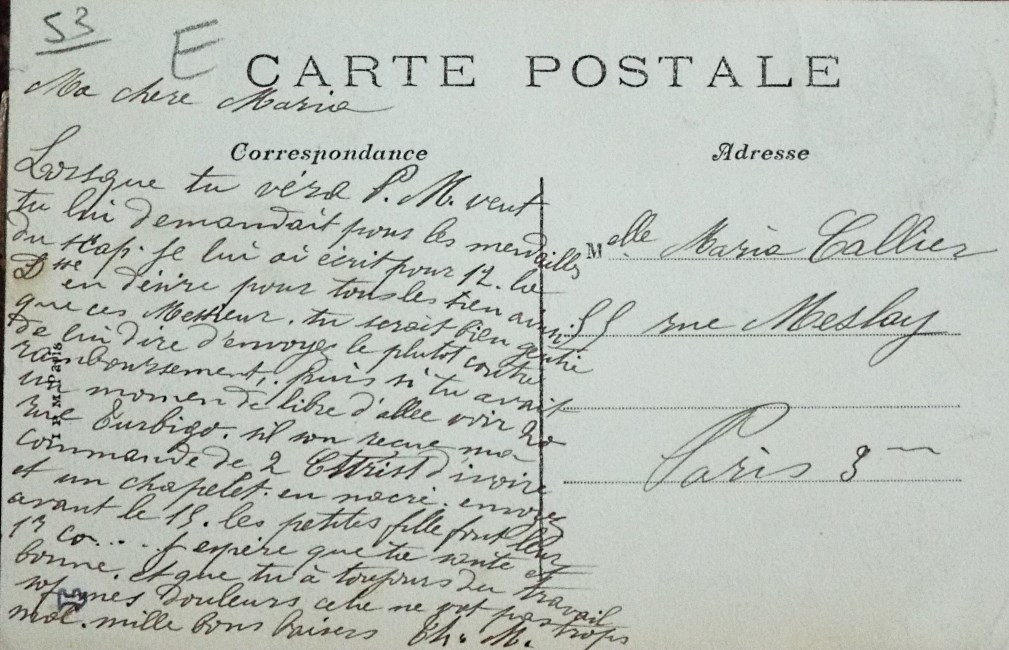 53
E
CARTE POSTALE
Ma chere Maria
Correspondance
Lorsque tu véra P. M. veut
tu lui demandait pour les medailles
du scap. je lui ai écrit pour 12. la
en désire pour tous les bien aussi
que ces Messieur. tu serait bien gentie
de lui dire d'envoyez le plutot contre
ramboursement, puis si tu avait
un moment de libre d'allee voir 20
rue Turbigo. sil son recue ma
commande de 2 Christ d'ivoire
et un chapelet en nacre. envoyez
avant le 15. les petites fille font leur
1re co... J espère que ta sante et
bonne, et que tu à toujours du travail
mes douleurs cela ne vat pas trops
mal. mille bons baisers Th. M.
Adresse
Melle Maria Callier
55 rue Meslay
Paris 3